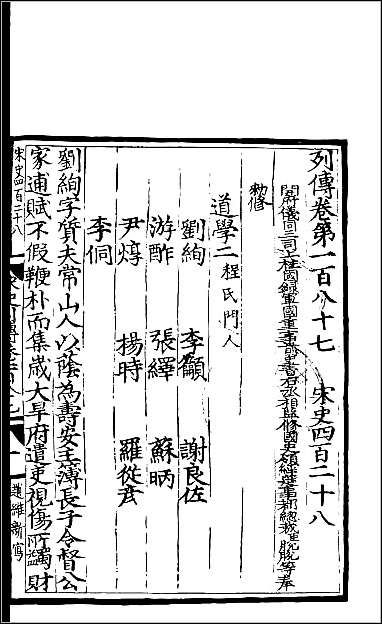 列傳卷第一百八十七　宋史四百二十八
開府儀同三司上柱國錄軍國重事前中書右丞相監修國史領經筵事都總裁臣脫脫等奉
勅修
道學二 程氏門人
劉絢　李籲　謝良佐
游酢　張繹　蘇昞
尹焞　楊時　羅從彥
李侗
劉絢字質夫常山人以蔭為壽安主簿長子令督公
家逋賦不假鞭朴而集歲大旱府遣吏視傷所蠲財
宋史四百二十八
趙維新寫